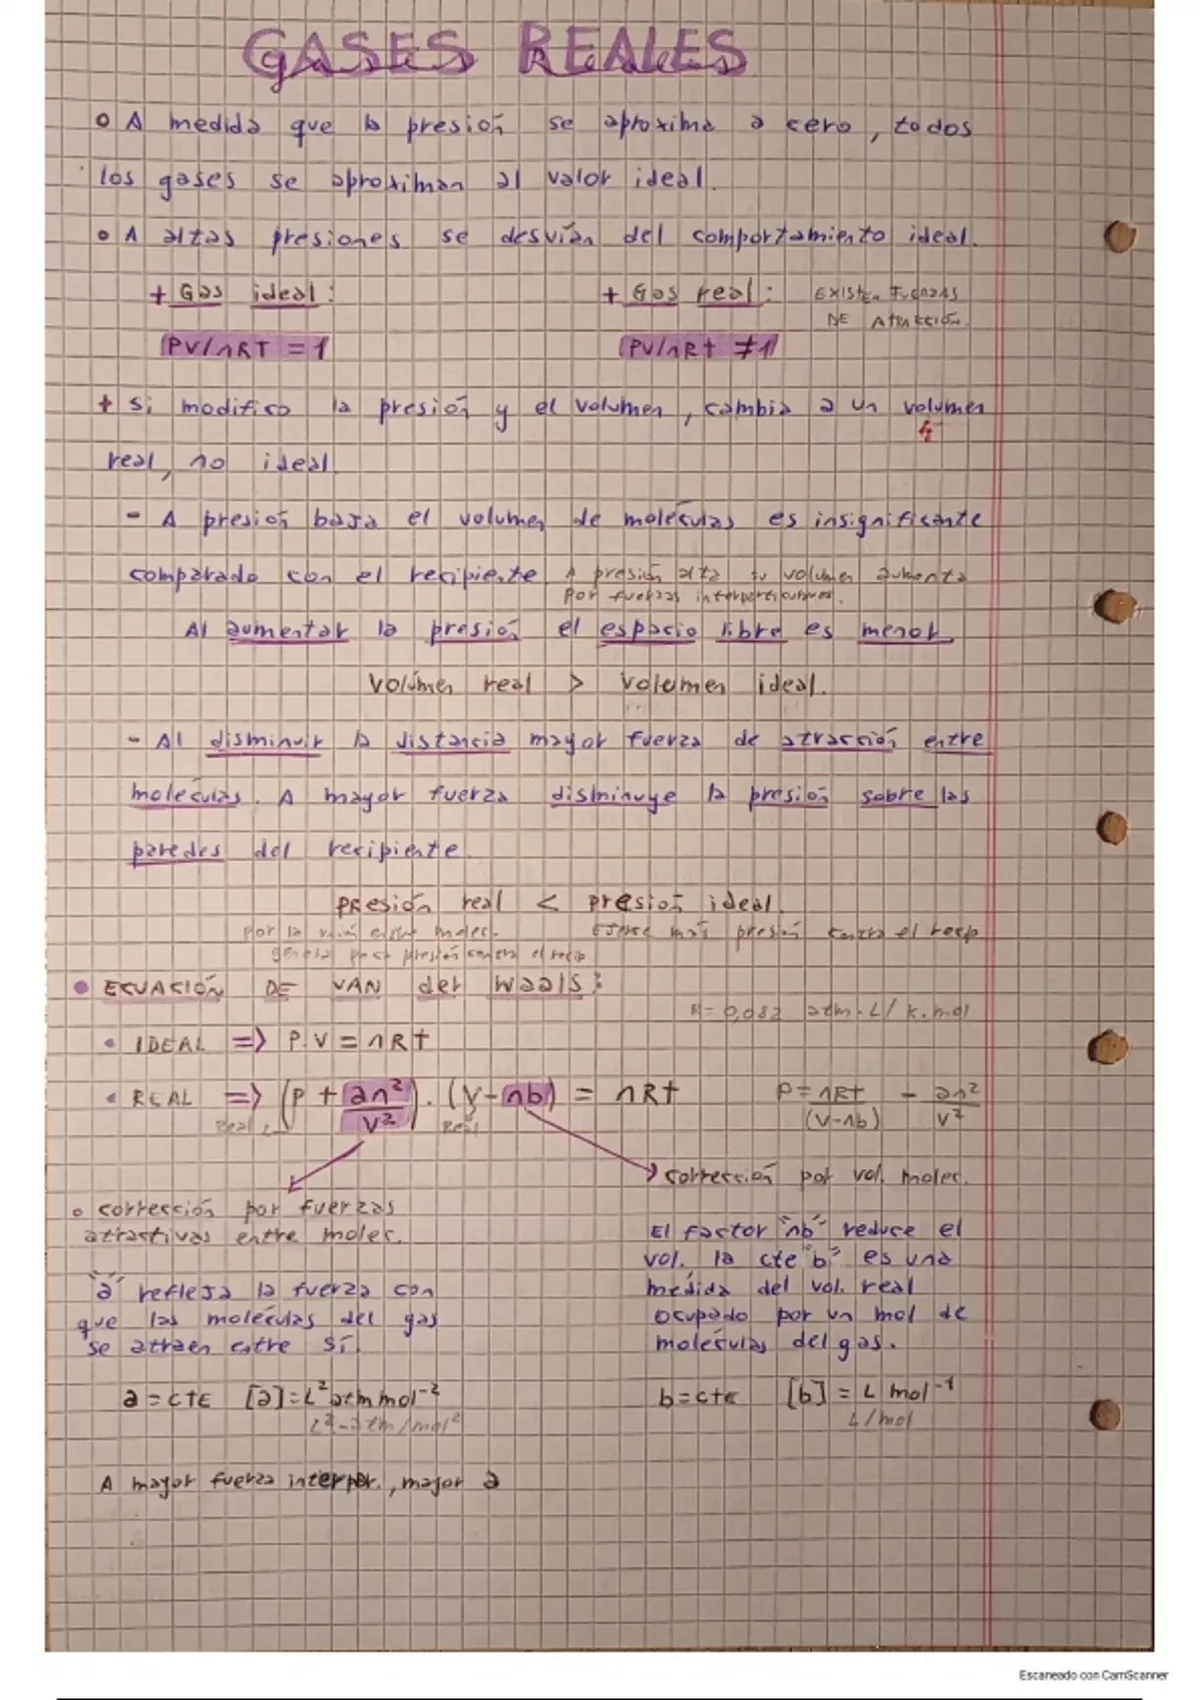 GASES REALES
o A medida que la presión se aproxima a cero, todos
los gases se aproximan al valor ideal.
o A altas presiones se desvían del comportamiento ideal.
+ Gas ideal:
+ Gas real: EXISTEN FUERZAS
DE ATRACCIÓN.
PV/nRT = 1
PV/nRt ≠ 1
+ Si modifico la presión y el volumen, cambia a un volumen
real, no ideal.
- A presión baja el volumen de moléculas es insignificante
comparado con el recipiente. A presión alta su volumen aumenta
por fuerzas interparticulares.
Al aumentar la presión el espacio libre es menor
Volúmen real > Volumen ideal.
- Al disminuir la distancia mayor fuerza de atracción entre
moléculas. A mayor fuerza disminuye la presión sobre las
paredes del recipiente.
PResión real < presión ideal.
por la unión entre molec. Ejerce más presión contra el recip.
genera poca presión contra el recip
• ECUACIÓN DE VAN der Waals:
R= 0,082 atm.L/K.mol
• IDEAL => P.V = nRt
• REAL => (P + an²/V²) . (V-nb) = nRt
P = nRt/(V-nb) - an²/V²
Real Real
→ corrección por vol. molec.
o corrección por fuerzas
atractivas entre molec.
El factor "nb" reduce el
vol. la cte "b" es una
medida del vol. real
ocupado por un mol de
moléculas del gas.
"a" refleja la fuerza con
que las moléculas del gas
se atraen entre sí.
a = cte [a] = L² atm mol⁻²
L²-atm/mol²
b = cte [b] = L mol⁻¹
L/mol
A mayor fuerza interpar., mayor a
Escaneado con CamScanner